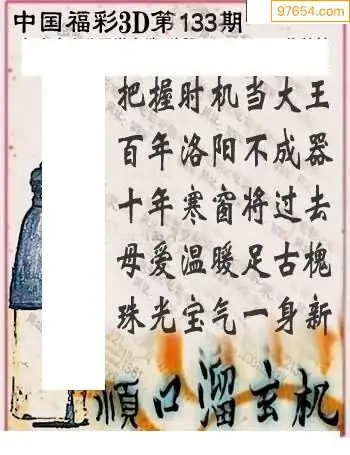 97654.com
中国福彩3D第133期
把握时机当大王
百年洛阳不成器
十年寒窗将过去
母爱温暖足古槐
珠光宝气一身新
顺口溜玄机